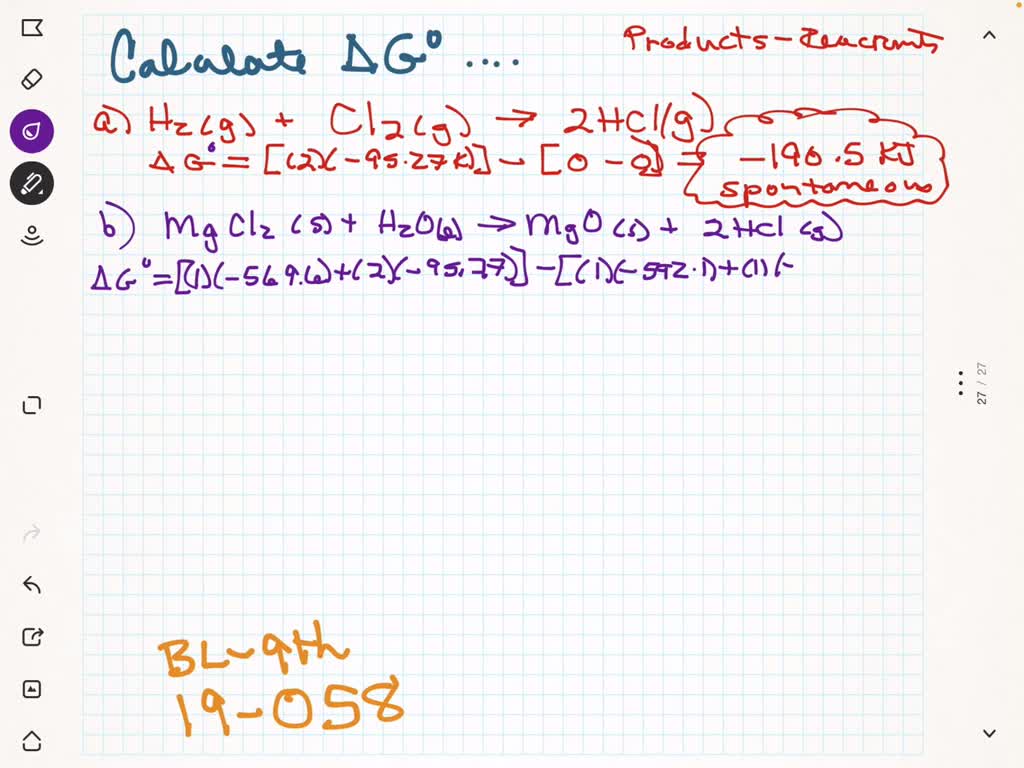 Calculate ΔG° ....
Products - Reactants
a) H2(g) + Cl2(g) → 2HCl(g)
ΔG° = [(2)(-95.27 kJ)] - [0 - 0] = -190.5 kJ
spontaneous
b) MgCl2 (s) + H2O(l) → MgO (s) + 2HCl (g)
ΔG° = [(1)(-569.6) + (2)(-95.27)] - [(1)(-592.1) + (1)(-
27 / 27
BL-9th
19-058